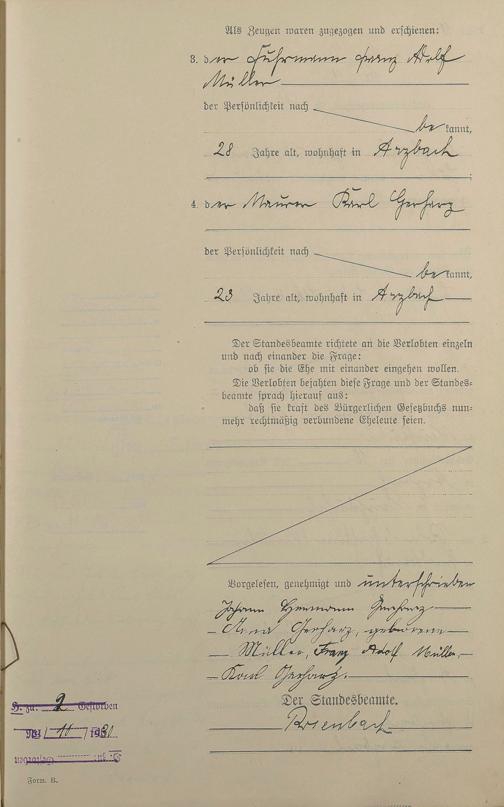 Als Zeugen waren zugezogen und erschienen:
3. der Fuhrmann Franz Adolf
Müller
der Persönlichkeit nach
bekannt,
28 Jahre alt, wohnhaft in Arzbach
4. der Maurer Karl Gerharz
der Persönlichkeit nach
bekannt,
23 Jahre alt, wohnhaft in Arzbach
Der Standesbeamte richtete an die Verlobten einzeln
und nach einander die Frage:
ob sie die Ehe mit einander eingehen wollen.
Die Verlobten bejahten diese Frage und der Standes-
beamte sprach hierauf aus:
daß sie kraft des Bürgerlichen Gesetzbuchs nun-
mehr rechtmäßig verbundene Eheleute seien.
Vorgelesen, genehmigt und unterschrieben
Johann Hermann Gerharz
Anna Gerharz, geborene
Müller, Franz Adolf Müller,
Karl Gerharz.
Der Standesbeamte.
Rosenbach
H. zu: 2 Gestorben
Form. B.